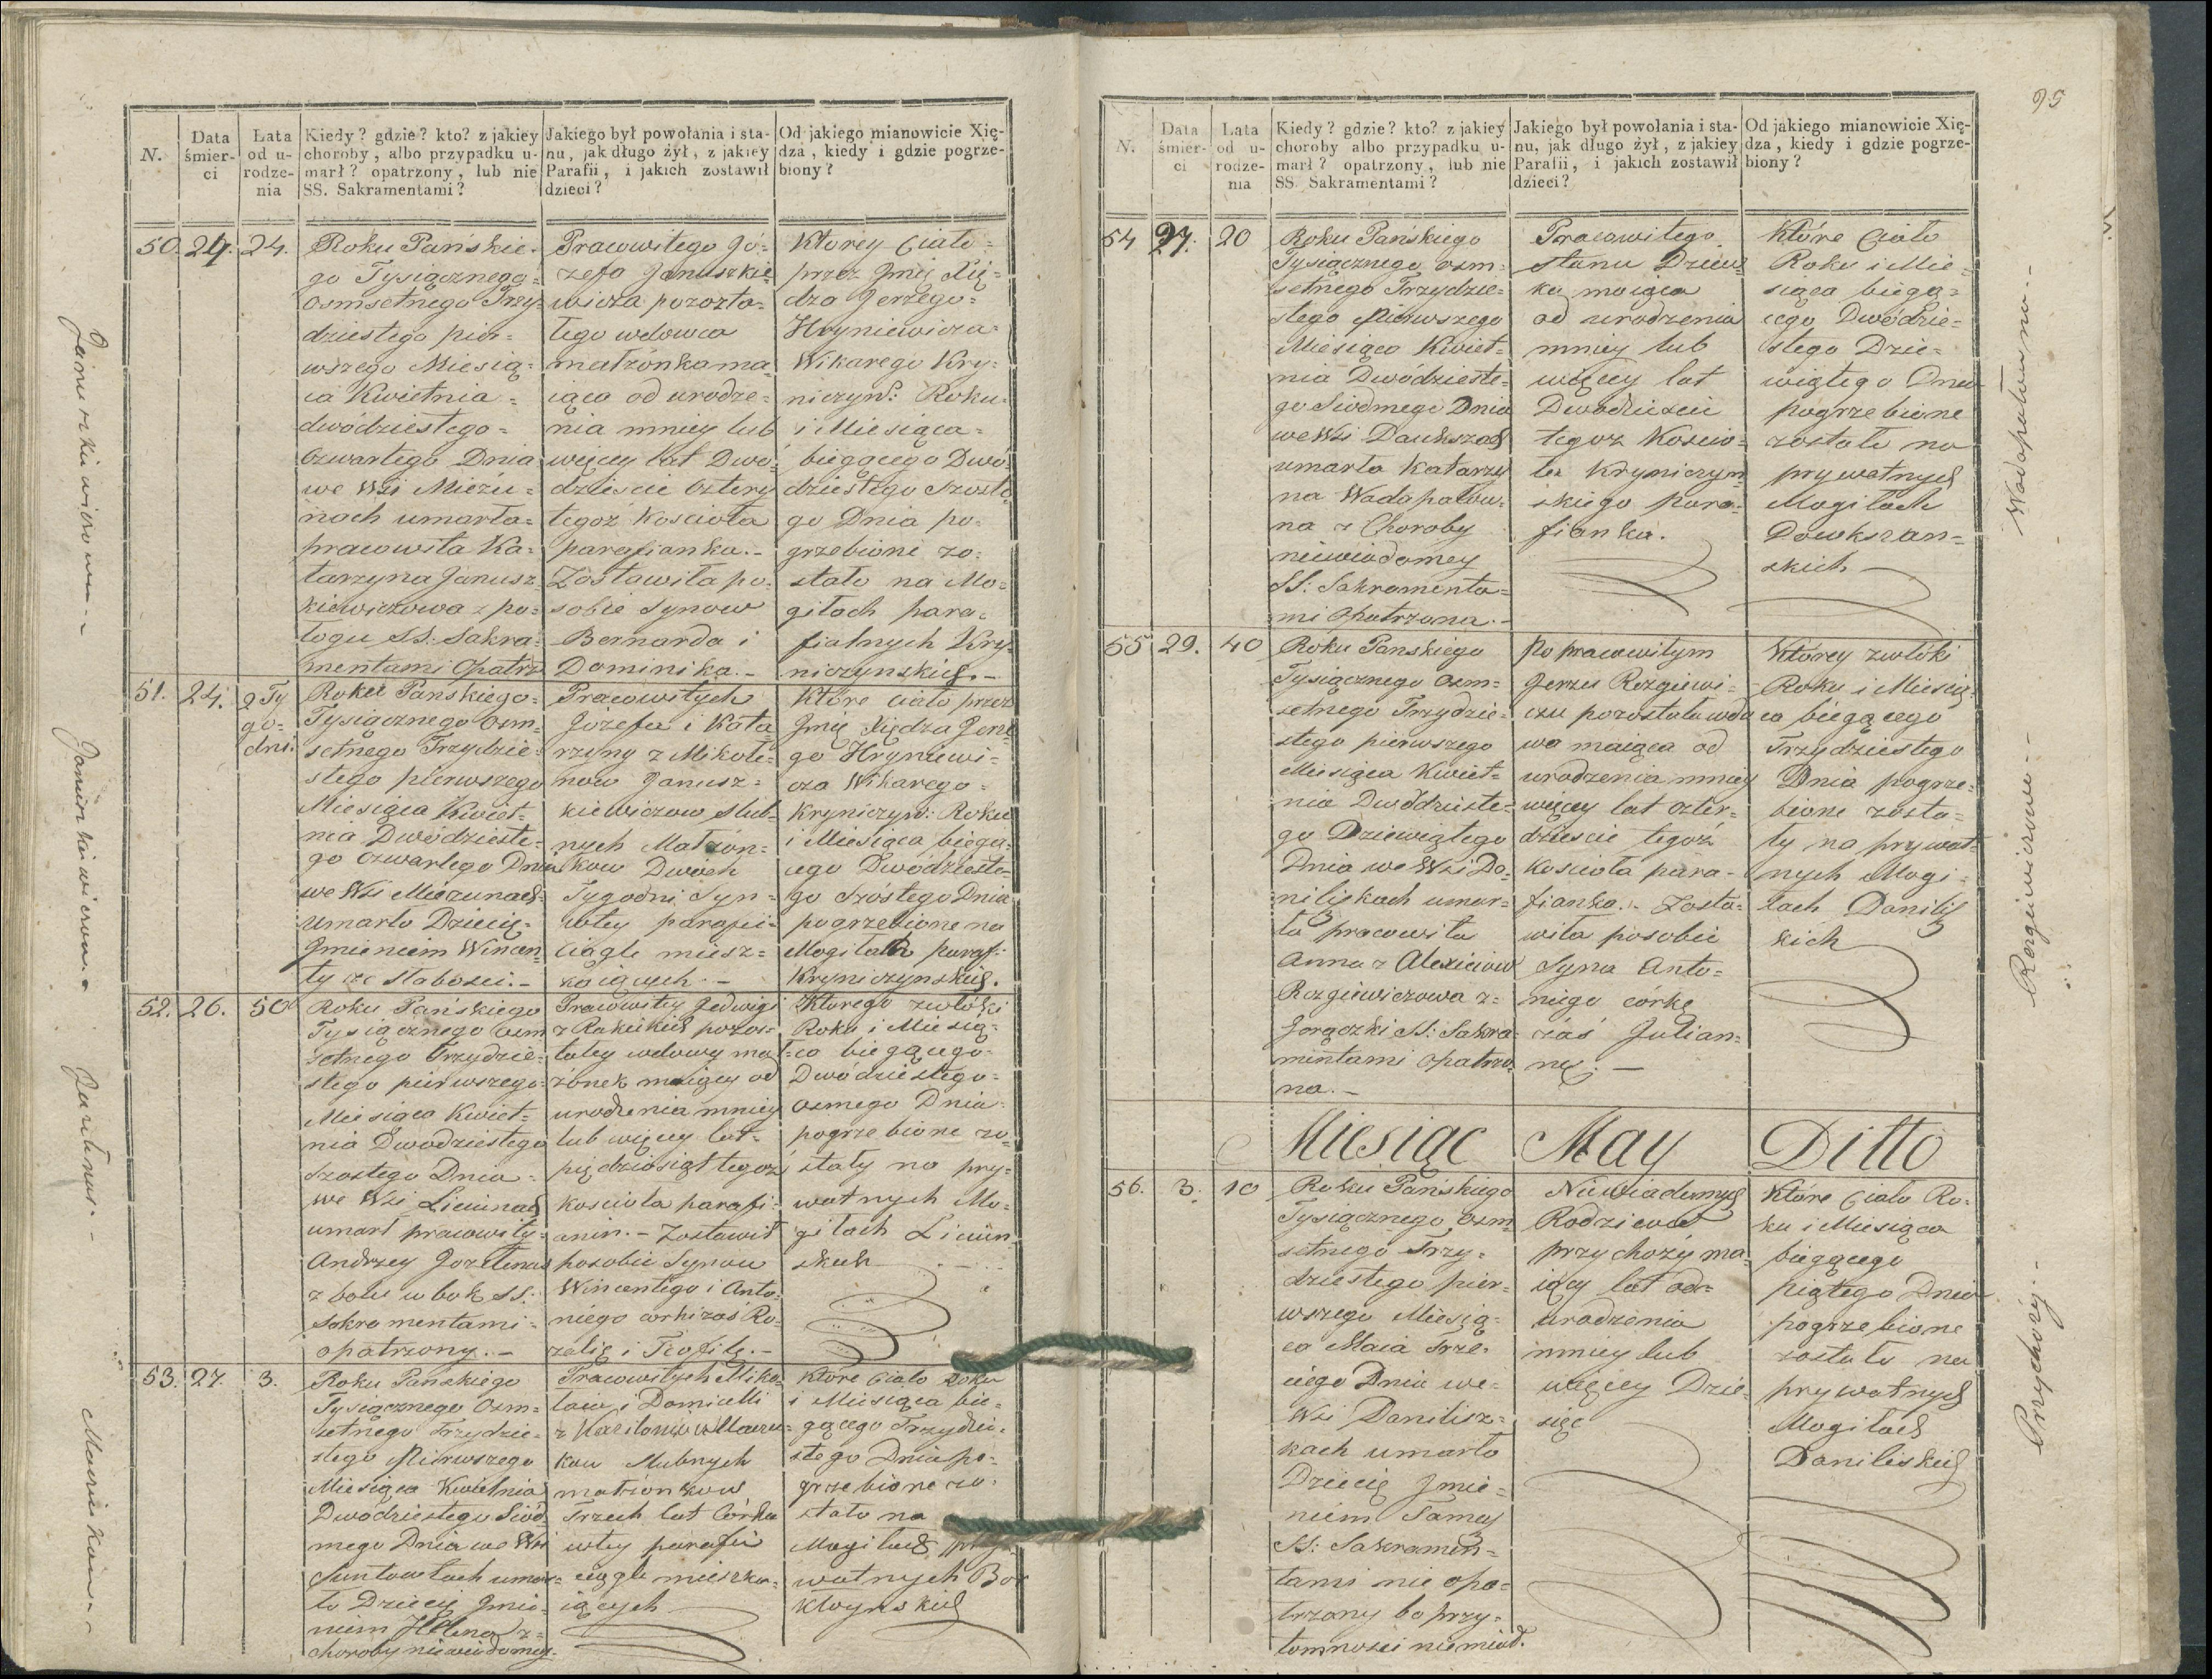 N.
Data śmier-
ci
Lata
od u-
rodze-
nia
Kiedy? gdzie? kto? z jakiey
choroby, albo przypadku u-
marł? opatrzony, lub nie
SS. Sakramentami?
Jakiego był powołania i sta-
nu, jak długo żył, z jakiey
Parafii, i jakich zostawił
dzieci?
Od jakiego mianowicie Xię-
dza, kiedy i gdzie pogrze-
biony?
50. 24. 24.
Roku Pańskie-
go Tysiącznego
osmsetnego Trzy-
dziestego pier-
wszego Miesią-
ca Kwietnia
dwódziestego
czwartego Dnia
we Wsi Miezu-
nach umarła
pracowita Ka-
tarzyna Janusz
kiewiczowa z po-
łogu SS: Sakra-
mentami Opatrz
Pracowitego Jó-
zefa Januszkie
wicza pozosta-
łego wdowca
małżonka ma
iąca od urodze-
nia mniey lub
więcey lat Dwo-
dziescie cztery
tegoż kościoła
parafianka.-
Zostawiła po
sobie Synow
Bernarda i
Dominika.-
Ktorey Ciało
przez Jmię Xię-
dza Jerzego
Hryniewicza
Wikarego Kry-
niczyń: Roku
i Miesiąca
biegącego Dwó-
dziestego szoste
go Dnia po-
grzebione zo-
stało na Mo-
giłach para-
fialnych Kry-
niczynskich.-
Januszkiewiczowa
51. 24. 2 Ty
go-
dni.
Roku Pańskiego
Tysiącznego Osm-
setnego Trzydzie-
stego pierwszego
Miesiąca Kwiet-
nia Dwódzieste-
go czwartego Dnia
we Wsi Miezunach
umarło Dziecię
Jmieniem Wincen
ty ze słabosci.-
Pracowitych
Józefa i Kata
rzyny z Mikołe-
now Janusz-
kiewiczow slub-
nych Małżon-
kow Dwóch
Tygodni Syn
wtey parafii
ciągle miesz-
kaiących.-
Które ciało przez
Jmię Xiędza Jerze
go Hryniewi-
cza Wikarego
Kryniczyń: Roku
i Miesiąca biegą-
cego Dwódzieste-
go Szóstego Dnia
pogrzebione na
Mogiłach paraf:
Kryniczynskich.
52. 26. 50
Roku Pańskiego
Tysiącznego osm
setnego Trzydzie-
stego pierwszego
Miesiąca Kwiet-
nia Dwodziestego
Szostego Dnia
we Wsi Liciunach
umarł pracowity
Andrzey
z bolu w bok SS:
Sakramentami
opatrzony.-
Pracowitey Jedwigi
pozos-
tałey wdowy mał-
żonek maiący od
urodzenia mniey
lub więcey lat
pięćdziesiąt tegoż
kosciola parafi-
anin.- Zostawił
posobie Synow
Wincentego i Anto-
niego corki zaś Ro-
zalię i Teofilę.-
Którego zwłóki
Roku i Miesią-
ca biegącego
Dwódziestego
osmego Dnia
pogrzebione zo-
stały na pry-
watnych Mo-
giłach Liciun
skich
53. 27. 3.
Roku Pańskiego
Tysiącznego Osm-
setnego Trzydzie-
stego Pierwszego
Miesiąca Kwietnia
Dwódziestego Siód
mego Dnia we Wsi
umar-
ło Dziecię Jmie-
niem Helena z
choroby niewiadomey
Pracowitych Miko
łaia i Domicelli
kow slubnych
małżonkow
Trzech lat Córka
wtey parafii
ciągle mieszka-
iących
Które ciało Roku
i Miesiąca bie-
gącego Trzydzie-
stego Dnia po-
grzebione zo-
stało na
Mogiłach pry-
watnych
95
N.
Data
śmier-
ci
Lata
od u-
rodze-
nia
Kiedy? gdzie? kto? z jakiey
choroby albo przypadku u-
marł? opatrzony, lub nie
SS. Sakramentami?
Jakiego był powołania i sta-
nu, jak długo żył, z jakiey
Parafii, i jakich zostawił
dzieci?
Od jakiego mianowicie Xię-
dza, kiedy i gdzie pogrze-
biony?
54 27. 20
Roku Pańskiego
Tysiącznego osm-
setnego Trzydzie-
stego Pierwszego
Miesiąca Kwiet-
nia Dwódzieste-
go Siodmego Dnia
we Wsi Daukszach
umarła Katarzy
na Wadapałow-
na z Choroby
niewiadomey
SS: Sakramenta-
mi Opatrzona.-
Pracowitego
stanu Dziew
ka maiąca
od urodzenia
mniey lub
więcey lat
Dwodziescie
tegoż Koscio-
ła Kryniczyn
skiego para-
fianka.
Które Ciało
Roku i Mie-
siąca biegą-
cego Dwódzie-
stego Dzie-
wiątego Dnia
pogrzebione
zostało na
prywatnych
Mogiłach
Dowkszan-
skich
Wadapałowna
55 29. 40
Roku Pańskiego
Tysiącznego Osm-
setnego Trzydzie-
stego pierwszego
Miesiąca Kwiet-
nia Dwódzieste-
go Dziewiątego
Dnia we Wsi Da-
niliszkach umar-
ła pracowita
Anna z Alexiciow
Rozgiewiczowa z
Gorączki SS: Sakra-
mentami opatrzo
na.-
Po pracowitym
Jerzu Rozgiewi-
czu pozostała wdo
wa maiąca od
urodzenia mniey
więcey lat czter-
dziescie tegoż
kosciola para-
fianka.- Zosta-
wiła posobie
Syna Anto-
niego córkę
zaś Julian-
nę.-
Którey zwłóki
Roku i Miesią-
ca biegącego
Trzydziestego
Dnia pogrze-
bione zosta-
ły na prywat-
nych Mogi-
łach Danilis
kich
Rozgiewiczowa
Miesiąc May Ditto
56. 3. 10
Roku Pańskiego
Tysiącznego Osm
setnego Trzy-
dziestego pier-
wszego Miesią-
ca Maia Trze-
ciego Dnia we
Wsi Danilisz-
kach umarło
Dziecię Jmie-
niem Tamasz
SS: Sakramen-
tami nie opa-
trzony bo przy-
tomnosci niemiał.
Niewiadomych
Rodzicow
przychoży ma
iący lat od
urodzenia
mniey lub
więcey Dzie-
sięc
Które Ciało Ro-
ku i Miesiąca
biegącego
piątego Dnia
pogrzebione
zostało na
prywatnych
Mogiłach
Daniliskich
Przychoży.-